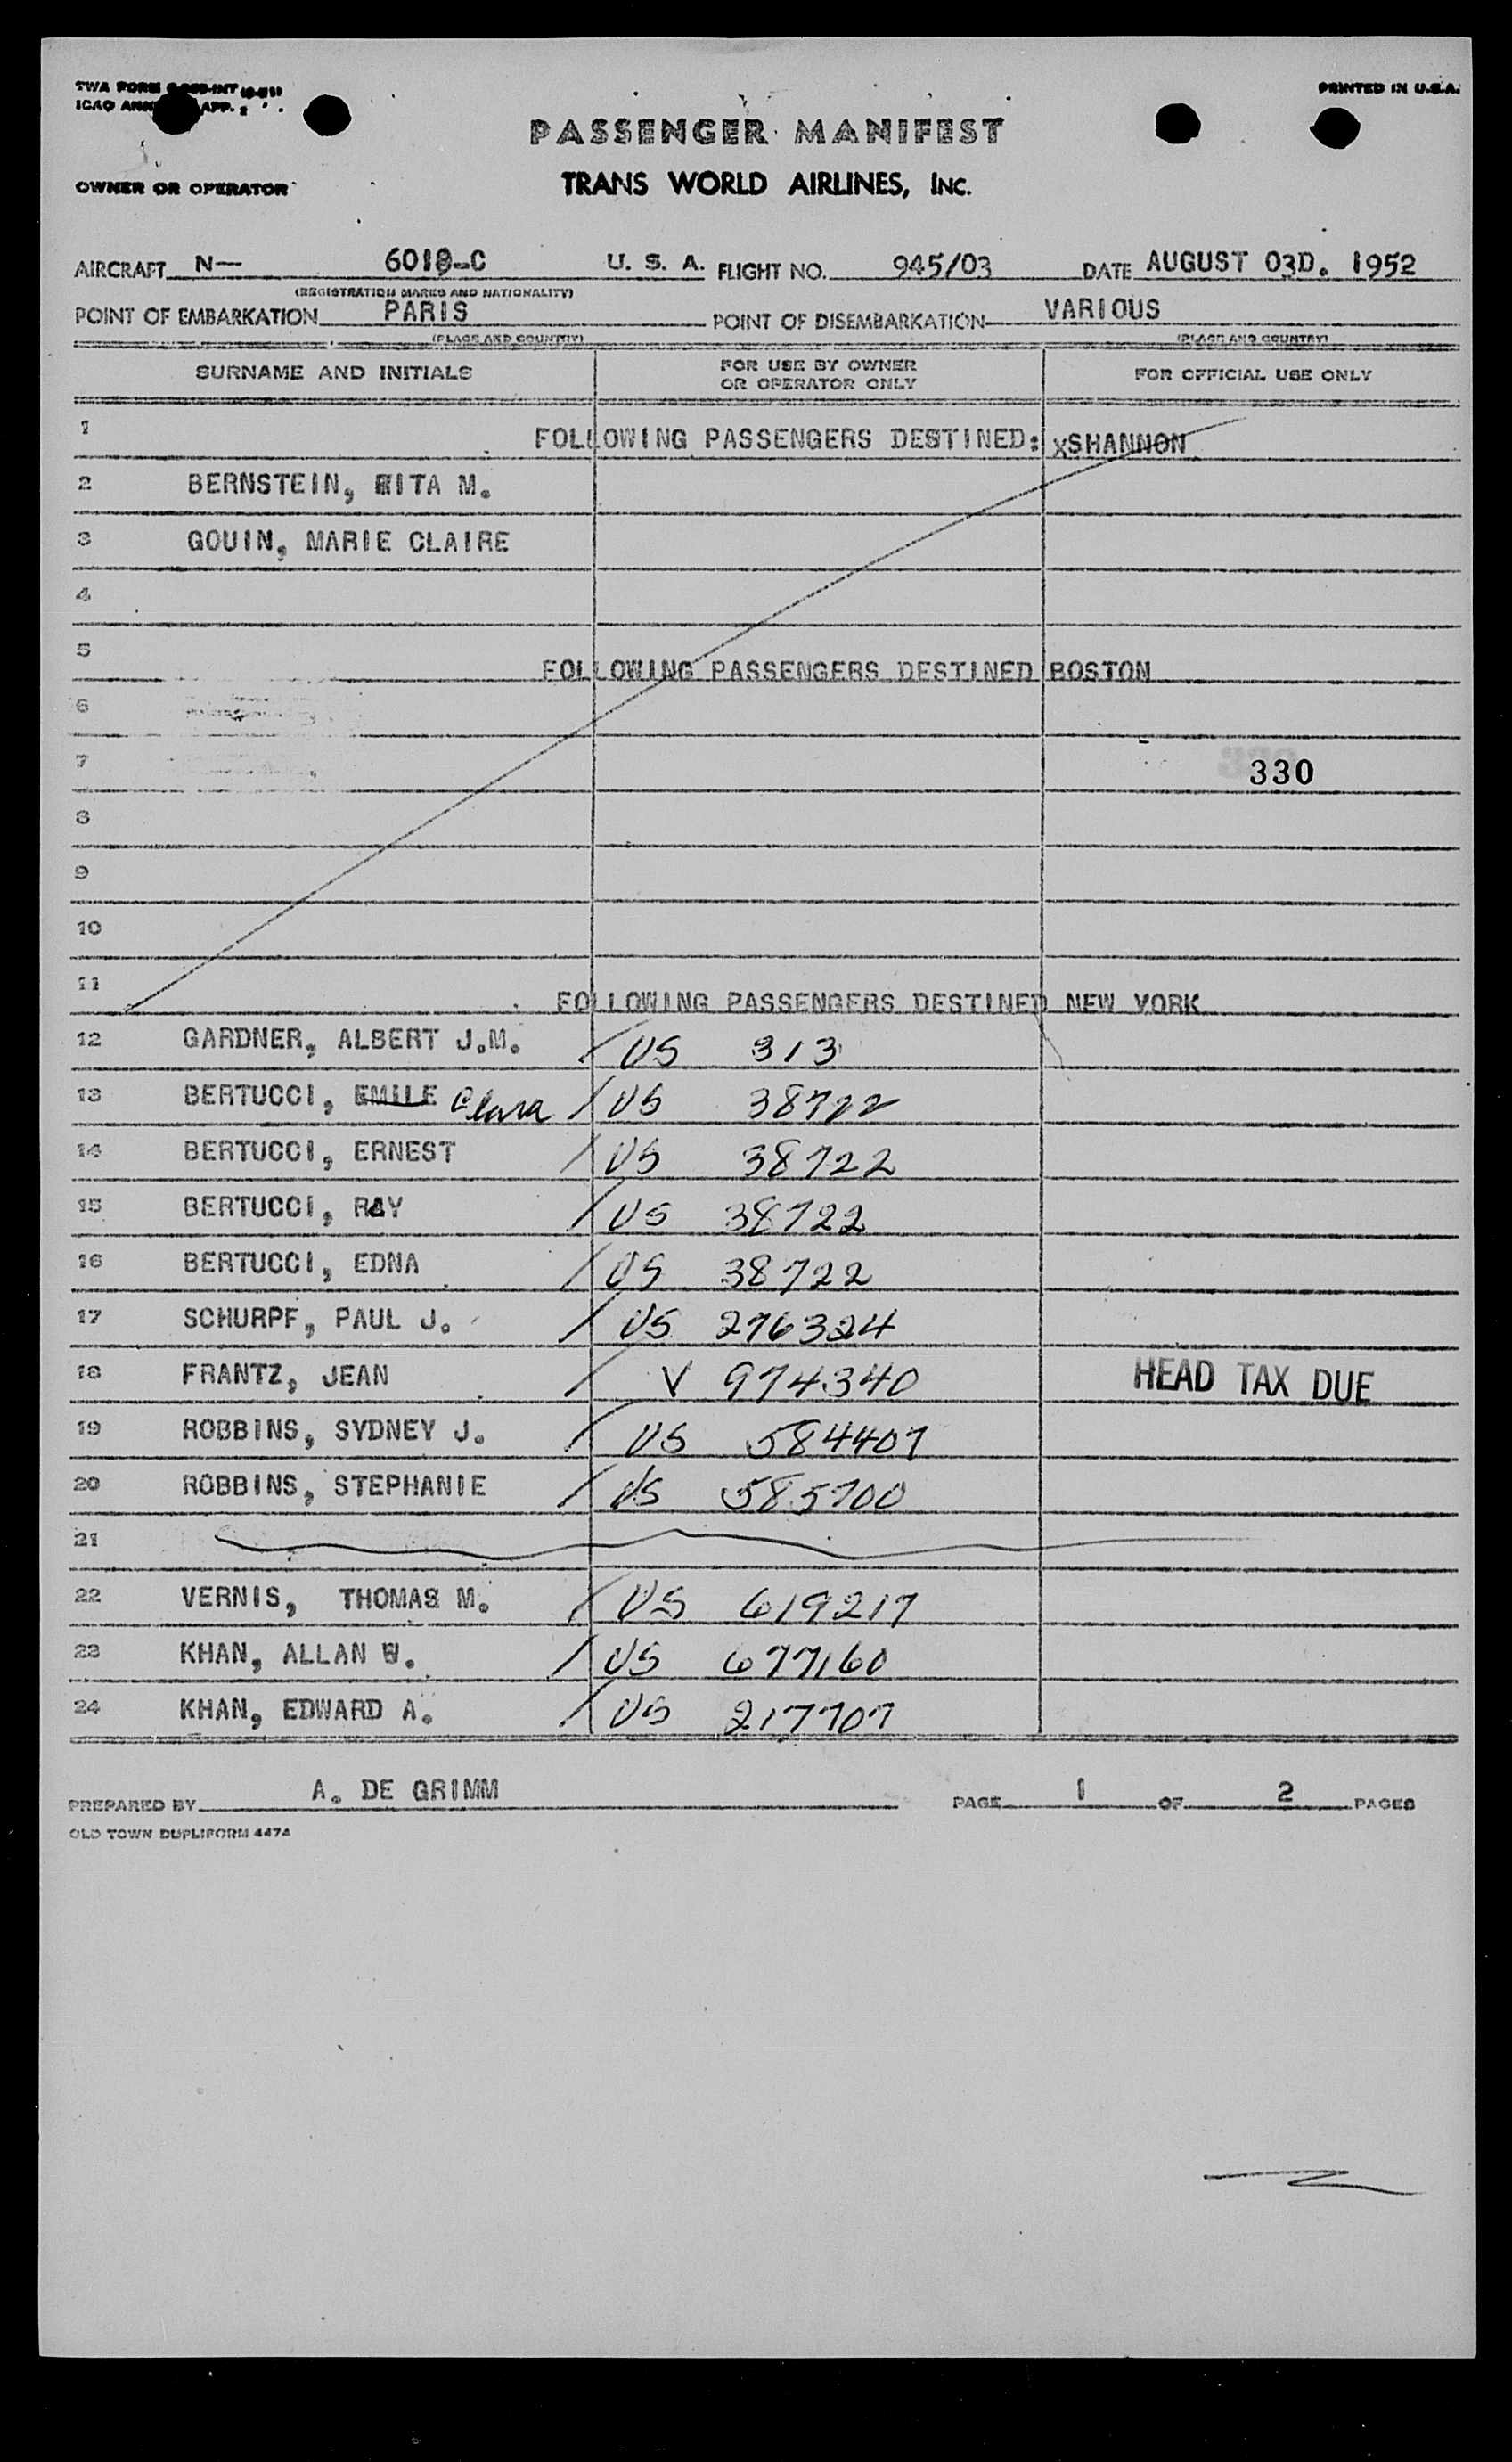 TWA FORM INT
ICAO APP. 2
PRINTED IN U.S.A.
PASSENGER MANIFEST
OWNER OR OPERATOR
TRANS WORLD AIRLINES, INC.
AIRCRAFT N— U. S. A. FLIGHT NO. 945/03 DATE AUGUST 03D. 1952
(REGISTRATION MARKS AND NATIONALITY)
POINT OF EMBARKATION PARIS POINT OF DISEMBARKATION VARIOUS
(PLACE AND COUNTRY) (PLACE AND COUNTRY)
SURNAME AND INITIALS FOR USE BY OWNER OR OPERATOR ONLY FOR OFFICIAL USE ONLY
1 FOLLOWING PASSENGERS DESTINED: XSHANNON
2 BERNSTEIN, RITA M.
3 GOUIN, MARIE CLAIRE
4
5 FOLLOWING PASSENGERS DESTINED BOSTON
6
7 330
8
9
10
11 FOLLOWING PASSENGERS DESTINED NEW YORK
12 GARDNER, ALBERT J.M. / US 313
13 BERTUCCI, EMILE Clara / US 38722
14 BERTUCCI, ERNEST / US 38722
15 BERTUCCI, RAY / US 38722
16 BERTUCCI, EDNA / US 38722
17 SCHURPF, PAUL J. / US 276324
18 FRANTZ, JEAN / V 974340 HEAD TAX DUE
19 ROBBINS, SYDNEY J. / US 584407
20 ROBBINS, STEPHANIE / US 585700
21
22 VERNIS, THOMAS M. / US 619217
23 KHAN, ALLAN W. / US 677160
24 KHAN, EDWARD A. / US 217707
PREPARED BY A. DE GRIMM PAGE 1 OF 2 PAGES
OLD TOWN DUPLIFORM 447A